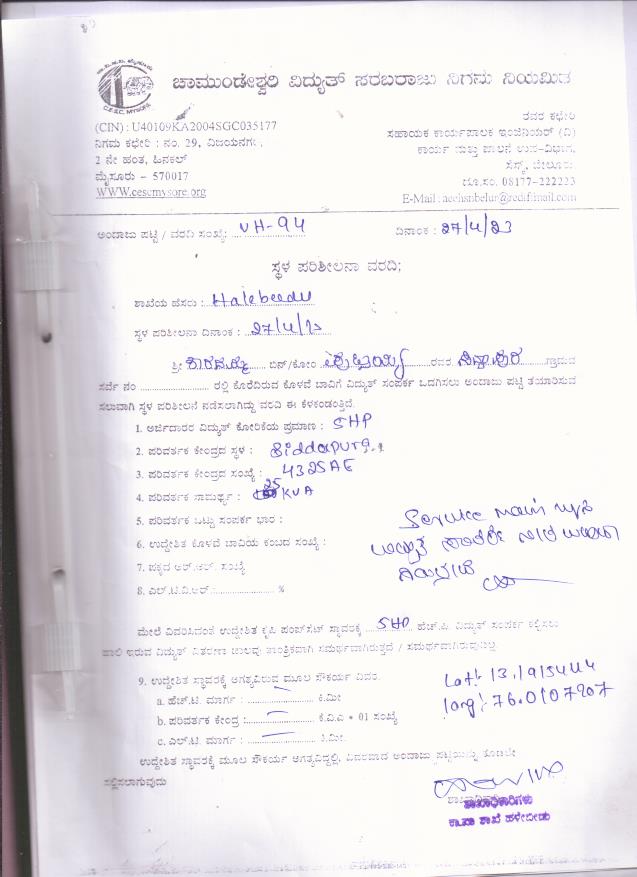 ಚಾಮುಂಡೇಶ್ವರಿ ವಿದ್ಯುತ್ ಸರಬರಾಜು ನಿಗಮ ನಿಯಮಿತ
C.E.S.C. MYSORE
(CIN) : U40109KA2004SGC035177
ನಿಗಮ ಕಛೇರಿ : ನಂ. 29, ವಿಜಯನಗರ,
2 ನೇ ಹಂತ, ಹಿನಕಲ್
ಮೈಸೂರು – 570017
WWW.cescmysore.org
ರವರ ಕಛೇರಿ
ಸಹಾಯಕ ಕಾರ್ಯಪಾಲಕ ಇಂಜಿನಿಯರ್ (ವಿ)
ಕಾರ್ಯ ಮತ್ತು ಪಾಲನೆ ಉಪ-ವಿಭಾಗ,
ಸೆಸ್ಕ್, ಬೇಲೂರು
ದೂ.ಸಂ. 08177-222223
E-Mail : aeehsnbelur@rediffmail.com
ಅಂದಾಜು ಪಟ್ಟಿ / ವರದಿ ಸಂಖ್ಯೆ: VH-94 ದಿನಾಂಕ : 27/4/23
ಸ್ಥಳ ಪರಿಶೀಲನಾ ವರದಿ;
ಶಾಖೆಯ ಹೆಸರು : Halebeedu
ಸ್ಥಳ ಪರಿಶೀಲನಾ ದಿನಾಂಕ : 27/4/23
ಶ್ರೀ ಬಿನ್/ಕೋಂ ರವರ ಗ್ರಾಮದ
ಸರ್ವೆ ನಂ ........ ರಲ್ಲಿ ಕೊರೆದಿರುವ ಕೊಳವೆ ಬಾವಿಗೆ ವಿದ್ಯುತ್ ಸಂಪರ್ಕ ಒದಗಿಸಲು ಅಂದಾಜು ಪಟ್ಟಿ ತಯಾರಿಸುವ
ಸಲುವಾಗಿ ಸ್ಥಳ ಪರಿಶೀಲನೆ ನಡೆಸಲಾಗಿದ್ದು ವರದಿ ಈ ಕೆಳಕಂಡಂತ್ತಿದೆ.
1. ಅರ್ಜಿದಾರರ ವಿದ್ಯುತ್ ಕೋರಿಕೆಯ ಪ್ರಮಾಣ : 5HP
2. ಪರಿವರ್ತಕ ಕೇಂದ್ರದ ಸ್ಥಳ : Siddapura
3. ಪರಿವರ್ತಕ ಕೇಂದ್ರದ ಸಂಖ್ಯೆ : 4325AE
4. ಪರಿವರ್ತಕ ಸಾಮರ್ಥ್ಯ : 25 KVA
5. ಪರಿವರ್ತಕ ಒಟ್ಟು ಸಂಪರ್ಕ ಭಾರ :
6. ಉದ್ದೇಶಿತ ಕೊಳವೆ ಬಾವಿಯ ಕಂಬದ ಸಂಖ್ಯೆ :
7. ಪಕ್ಕದ ಆರ್.ಆರ್. ಸಂಖ್ಯೆ
8. ಎಲ್.ಟಿ.ವಿ.ಆರ್ : ........ %
Service main
ಮೇಲೆ ವಿವರಿಸಿದಂತೆ ಉದ್ದೇಶಿತ ಕೃಷಿ ಪಂಪ್‌ಸೆಟ್ ಸ್ಥಾವರಕ್ಕೆ 5HP ಹೆಚ್.ಪಿ. ವಿದ್ಯುತ್ ಸಂಪರ್ಕ ಕಲ್ಪಿಸಲು
ಹಾಲಿ ಇರುವ ವಿದ್ಯುತ್ ವಿತರಣಾ ಜಾಲವು ತಾಂತ್ರಿಕವಾಗಿ ಸಮರ್ಥವಾಗಿರುತ್ತದೆ / ಸಮರ್ಥವಾಗಿರುವುದಿಲ್ಲ
9. ಉದ್ದೇಶಿತ ಸ್ಥಾವರಕ್ಕೆ ಅಗತ್ಯವಿರುವ ಮೂಲ ಸೌಕರ್ಯ ವಿವರ.
a. ಹೆಚ್.ಟಿ. ಮಾರ್ಗ : ........ ಕಿ.ಮೀ
b. ಪರಿವರ್ತಕ ಕೇಂದ್ರ : ........ ಕೆ.ವಿ.ಎ * 01 ಸಂಖ್ಯೆ
c. ಎಲ್.ಟಿ. ಮಾರ್ಗ : ........ ಕಿ.ಮೀ.
Lat: 13.1915444
long: 76.0107907
ಉದ್ದೇಶಿತ ಸ್ಥಾವರಕ್ಕೆ ಮೂಲ ಸೌಕರ್ಯ ಅಗತ್ಯವಿದ್ದಲ್ಲಿ, ವಿವರವಾದ ಅಂದಾಜು ಪಟ್ಟಿಯನ್ನು ಕೂಡಲೇ
ಸಲ್ಲಿಸಲಾಗುವುದು
ಶಾಖಾಧಿಕಾರಿಗಳು
ಕಾ.ಪಾ ಶಾಖೆ ಹಳೇಬೀಡು